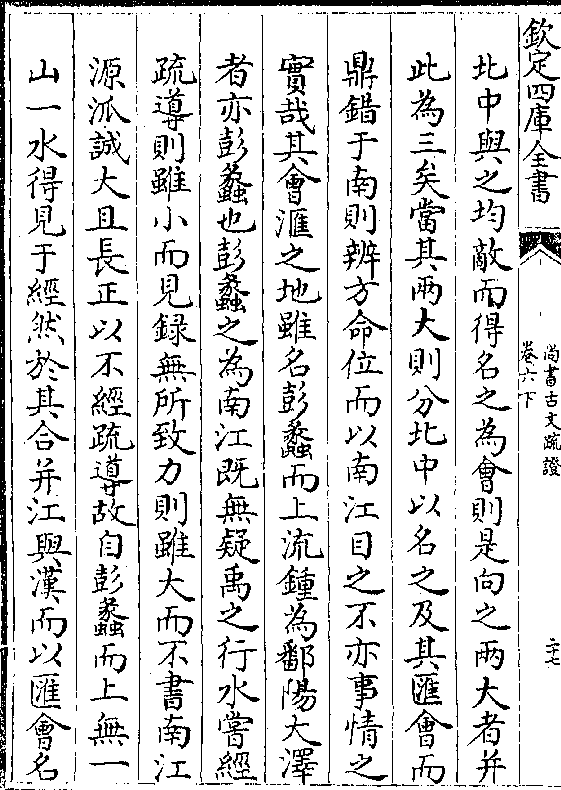 欽定四庫全書
尚書古文疏證
卷六下
二十七
北中與之均敵而得名之為會則是向之兩大者并
此為三矣當其兩大則分北中以名之及其匯會而
鼎錯于南則辨方命位而以南江目之不亦事情之
實哉其會滙之地雖名彭蠡而上流鍾為鄱陽大澤
者亦彭蠡也彭蠡之為南江既無疑禹之行水嘗經
疏導則雖小而見録無所致力則雖大而不書南江
源派誠大且長正以不經疏導故自彭蠡而上無一
山一水得見于經然於其合并江與漢而以匯會名